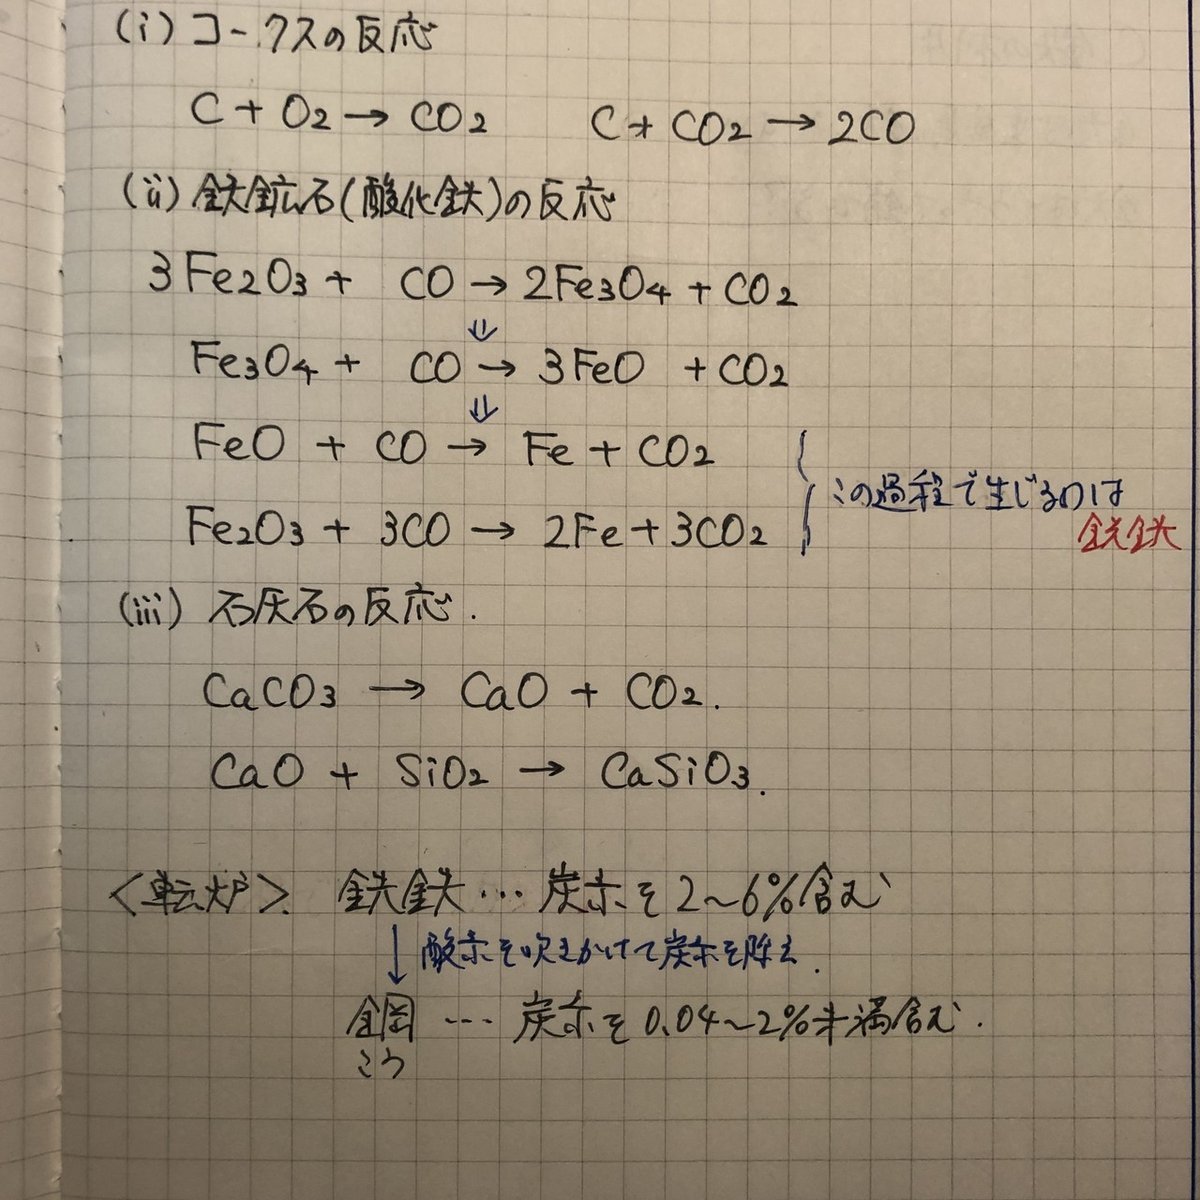 (i) コークスの反応
C + O2 → CO2　　C + CO2 → 2CO
(ii) 鉄鉱石(酸化鉄)の反応
3Fe2O3 + CO → 2Fe3O4 + CO2
⇓
Fe3O4 + CO → 3FeO + CO2
⇓
FeO + CO → Fe + CO2
Fe2O3 + 3CO → 2Fe + 3CO2
この過程で生じるのは
銑鉄
(iii) 石灰石の反応.
CaCO3 → CaO + CO2.
CaO + SiO2 → CaSiO3.
<転炉>. 銑鉄 … 炭素を2~6%含む
↓ 酸素を吹きかけて炭素を除去.
鋼 … 炭素を0.04~2%未満含む.
こう